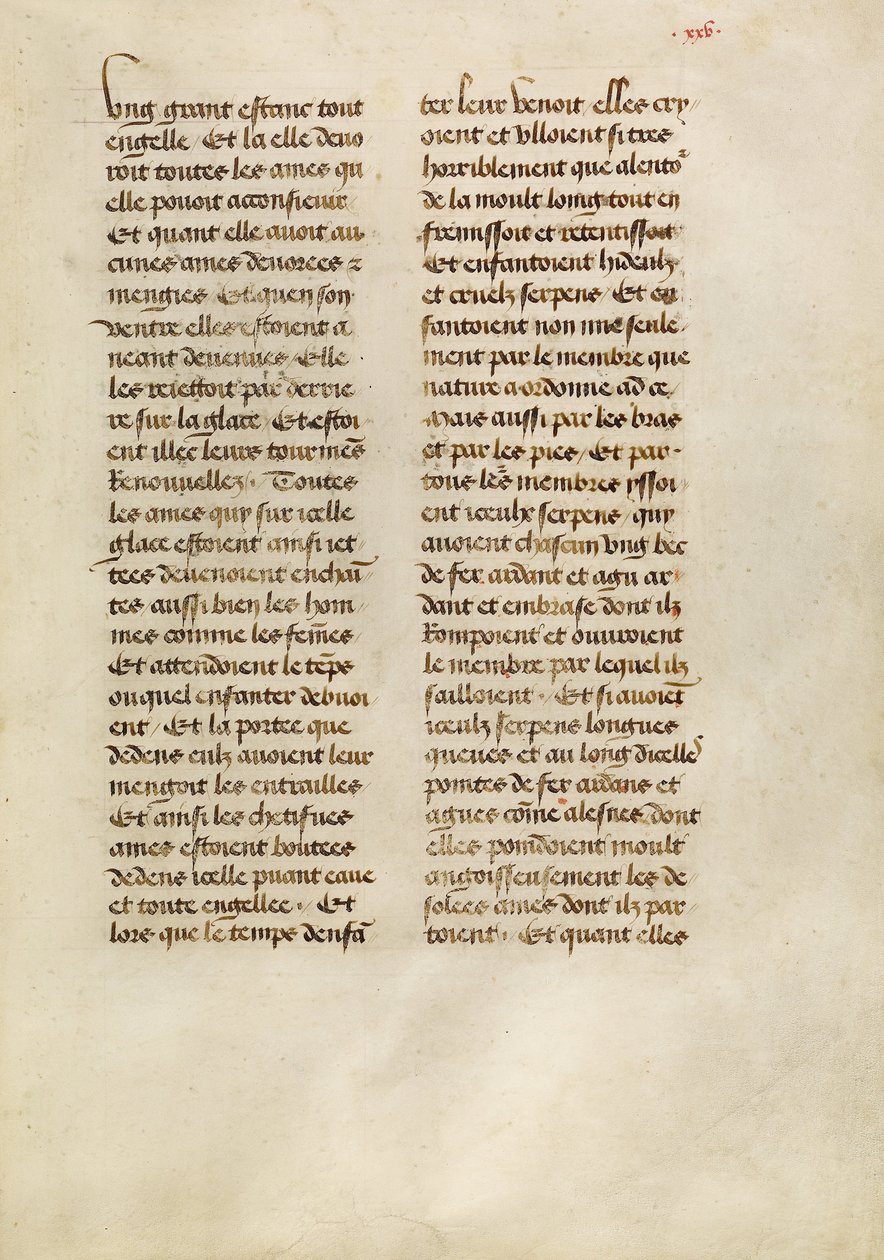 · xxv ·
Vng grant estanc tout
engelle / Et la elle deuo //
roit toutes les ames qu
elle pouoit acconsieuir
Et quant elle auoit au
cunes ames deuorees ⁊
mengies Et quen son
ventre elles estoient a
neant deuenues / Elle
les reiettoit par derrie
re sur la glace / Et estoi //
ent illec leurs tourmēs
Renouuellez / . Toutes
les ames quy sur icelle
glace estoient ainsi iet //
tees deuenoient enchaī //
tes aussi bien les hom //
mes comme les fem̄es
Et attendoient le tēps
ouquel enfanter debuoi //
ent / Et la portee que
dedens eulz auoient leur
mengoit les entrailles
Et ainsi les chetifues
ames estoient boutees
dedens icelle puant eaue
et toute engellee . / Et
lors que le temps denfā //
ter leur venoit / elles cry //
oient et vlloient si tres
horriblement que alentoʳ
de la moult loing tout en
fremissoit et retentissoit
Et enfantoient hideulz
et cruelz serpens / Et en
fantoient non mie seule //
ment par le membre que
nature a ordonne ad ce /
Mais aussi par les bras
et par les pies / Et par -
tous les membres yssoi //
ent iceulx serpens / quy
auoient chascun vng bec
de fer ardant et agu ar //
dant et embrase dont ilz
Rompoient et ouuroient
le membre par lequel ilz
sailloient . Et si auoiēt
iceulz serpens longues
queues et au long dicelles
pointes de fer ardans et
agues com̄e alesnes dont
elles poindoient moult
angoisseusement les de //
solees ames dont ilz par //
toient . / Et quant elles